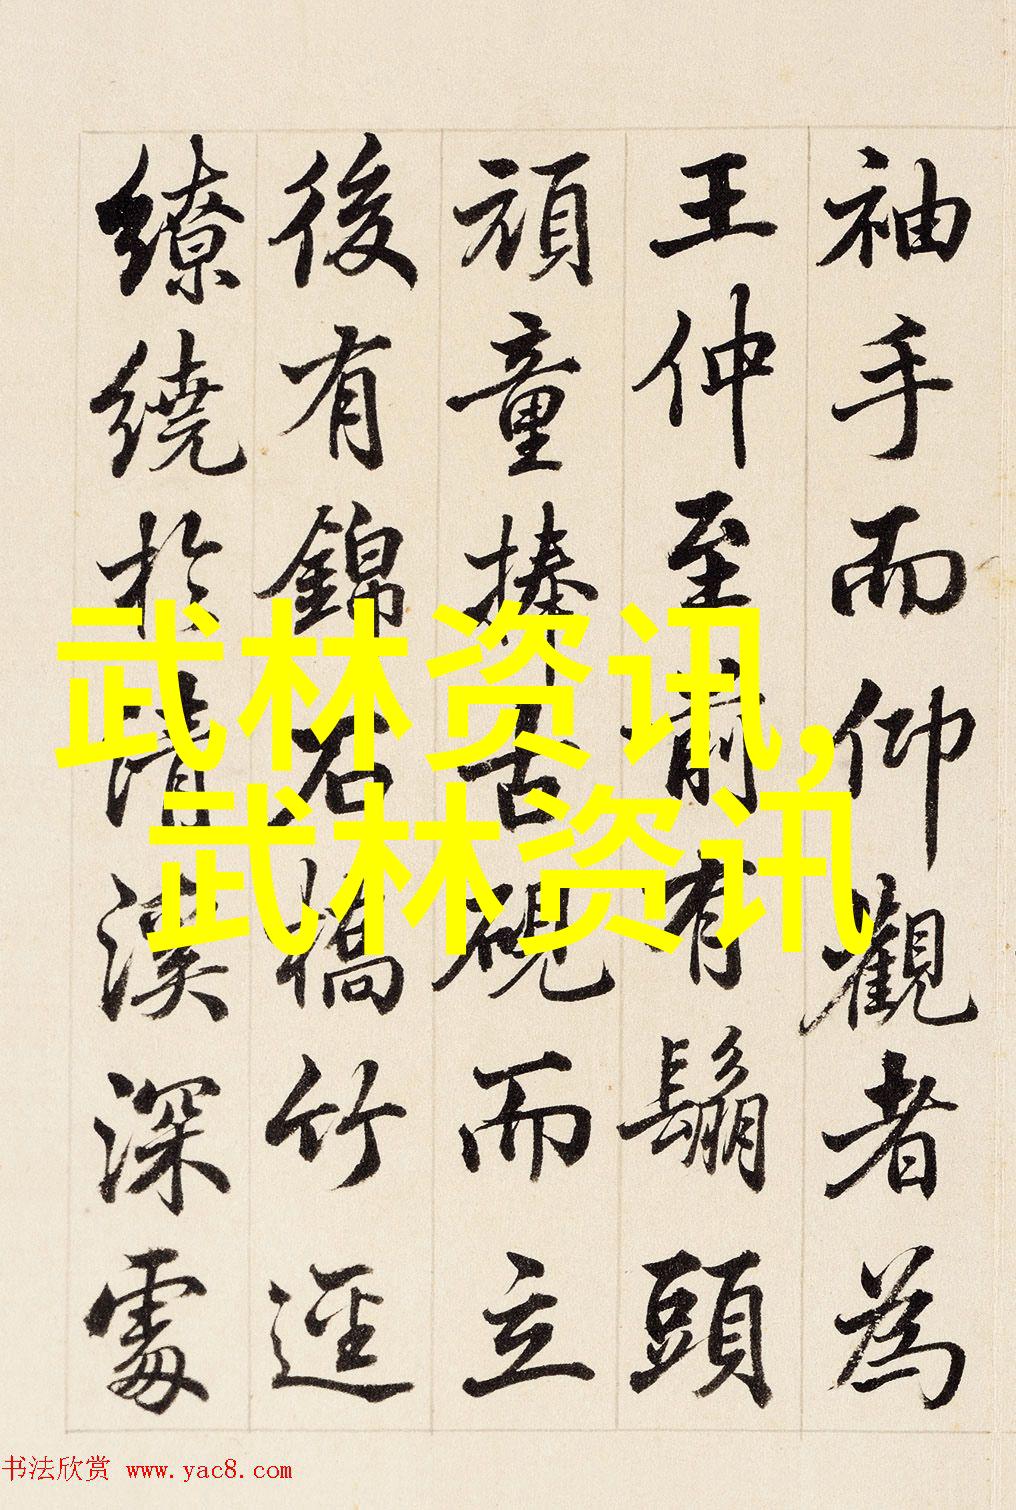 袖手而仰觀者為
王仲至前有鬅頭
頑童捧古硯而立
後有錦石橋竹逕
繚繞於清溪深處
武林资讯,
武林资讯
书法欣赏 www.yac8.com